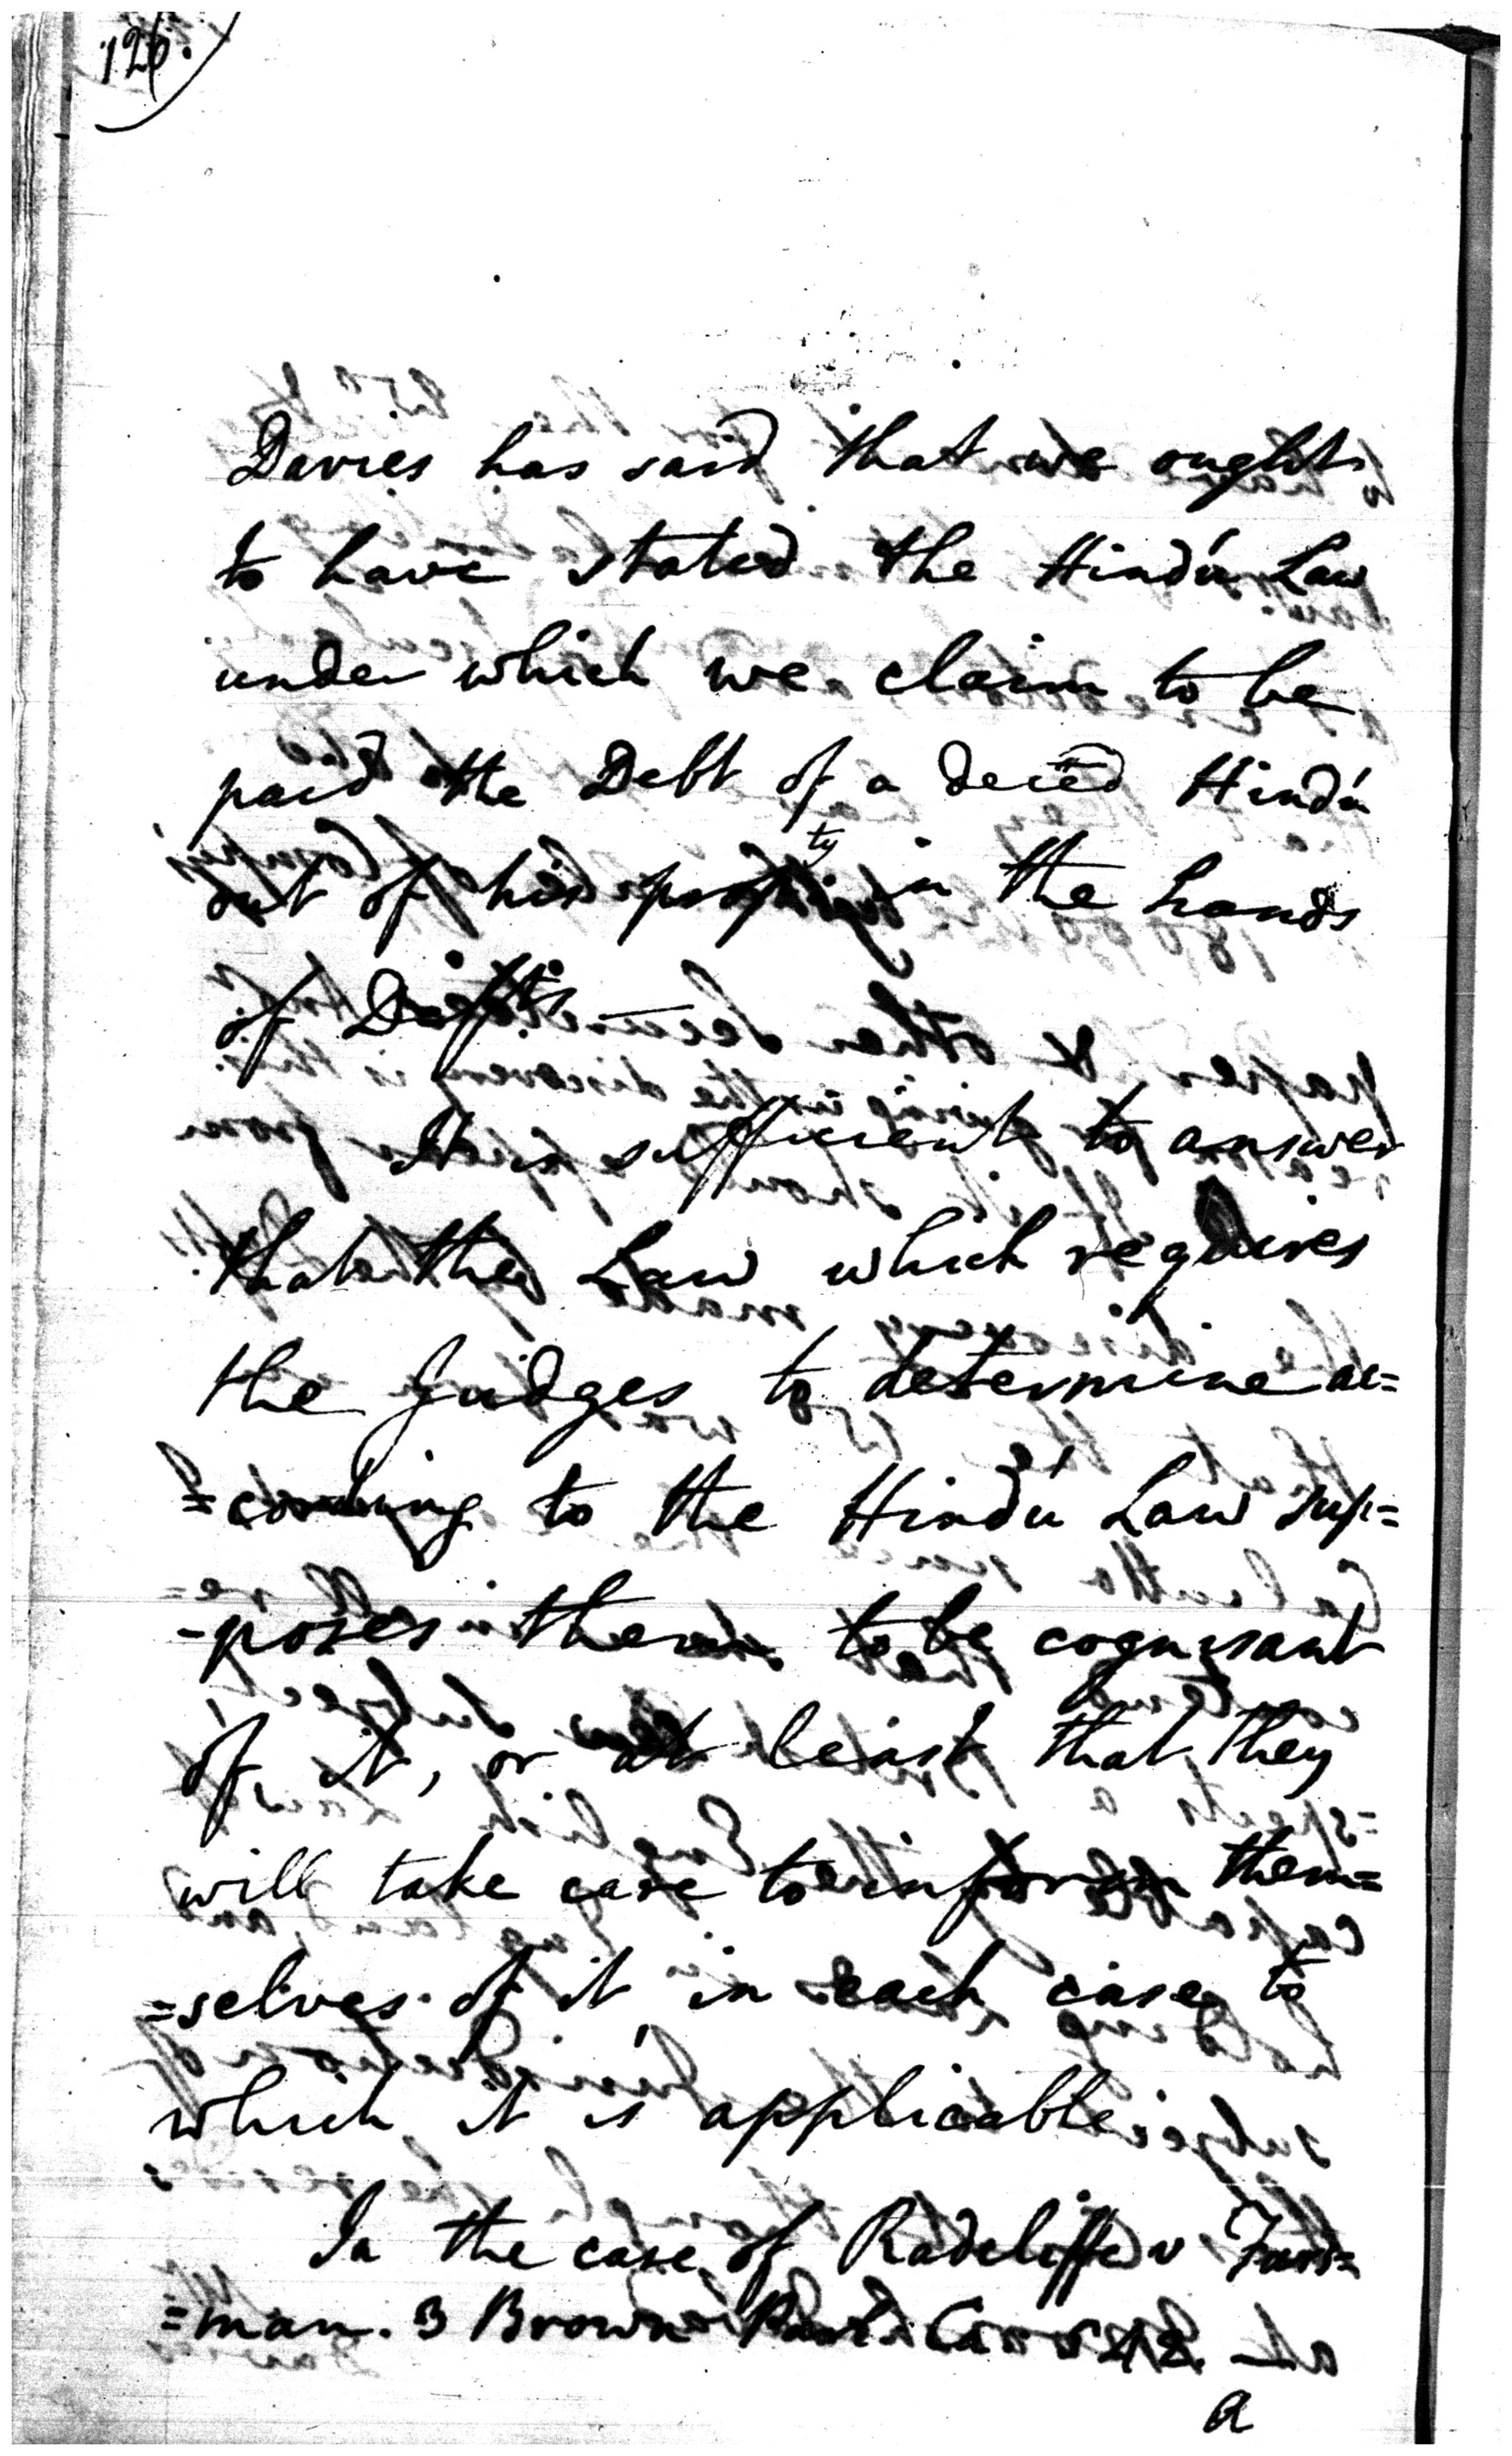 126.
Davies has said that we ought
to have stated the Hindú Law
under which we claim to be
paid the Debt of a deced Hindú
out of his propty in the hands
of Defts
It is sufficient to answer
that the Law which requires
the Judges to determine ac=
=cording to the Hindú Law sup=
-poses them to be cognisant
of it, or at least that they
will take care to inform them=
=selves of it in each case to
which it is applicable.
In the case of Radcliffe v
=man. 3 Brown Parl. Ca 542
a